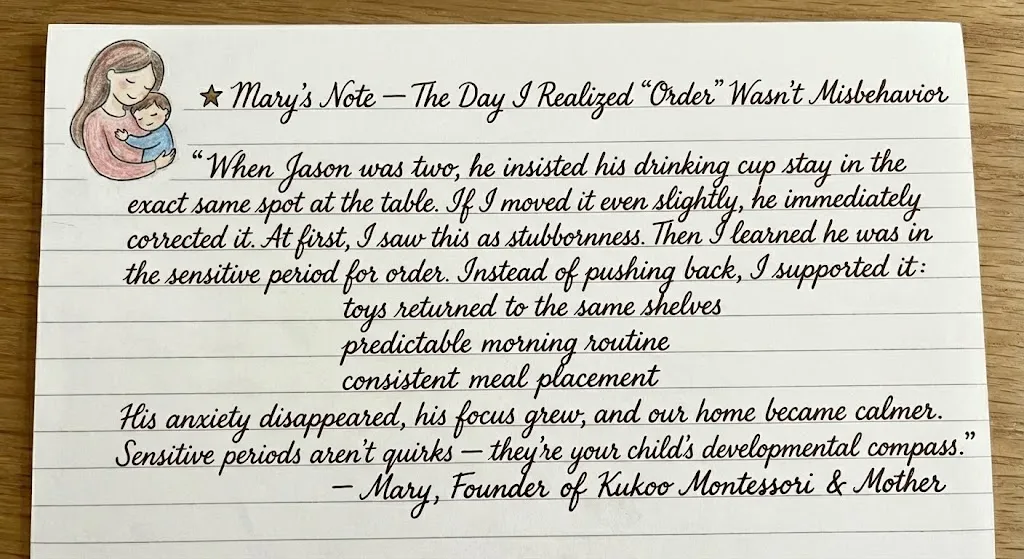 ★ Mary's Note — The Day I Realized “Order” Wasn't Misbehavior
“When Jason was two, he insisted his drinking cup stay in the
exact same spot at the table. If I moved it even slightly, he immediately
corrected it. At first, I saw this as stubbornness. Then I learned he was in
the sensitive period for order. Instead of pushing back, I supported it:
toys returned to the same shelves
predictable morning routine
consistent meal placement
His anxiety disappeared, his focus grew, and our home became calmer.
Sensitive periods aren't quirks — they're your child's developmental compass.”
— Mary, Founder of Kukoo Montessori & Mother